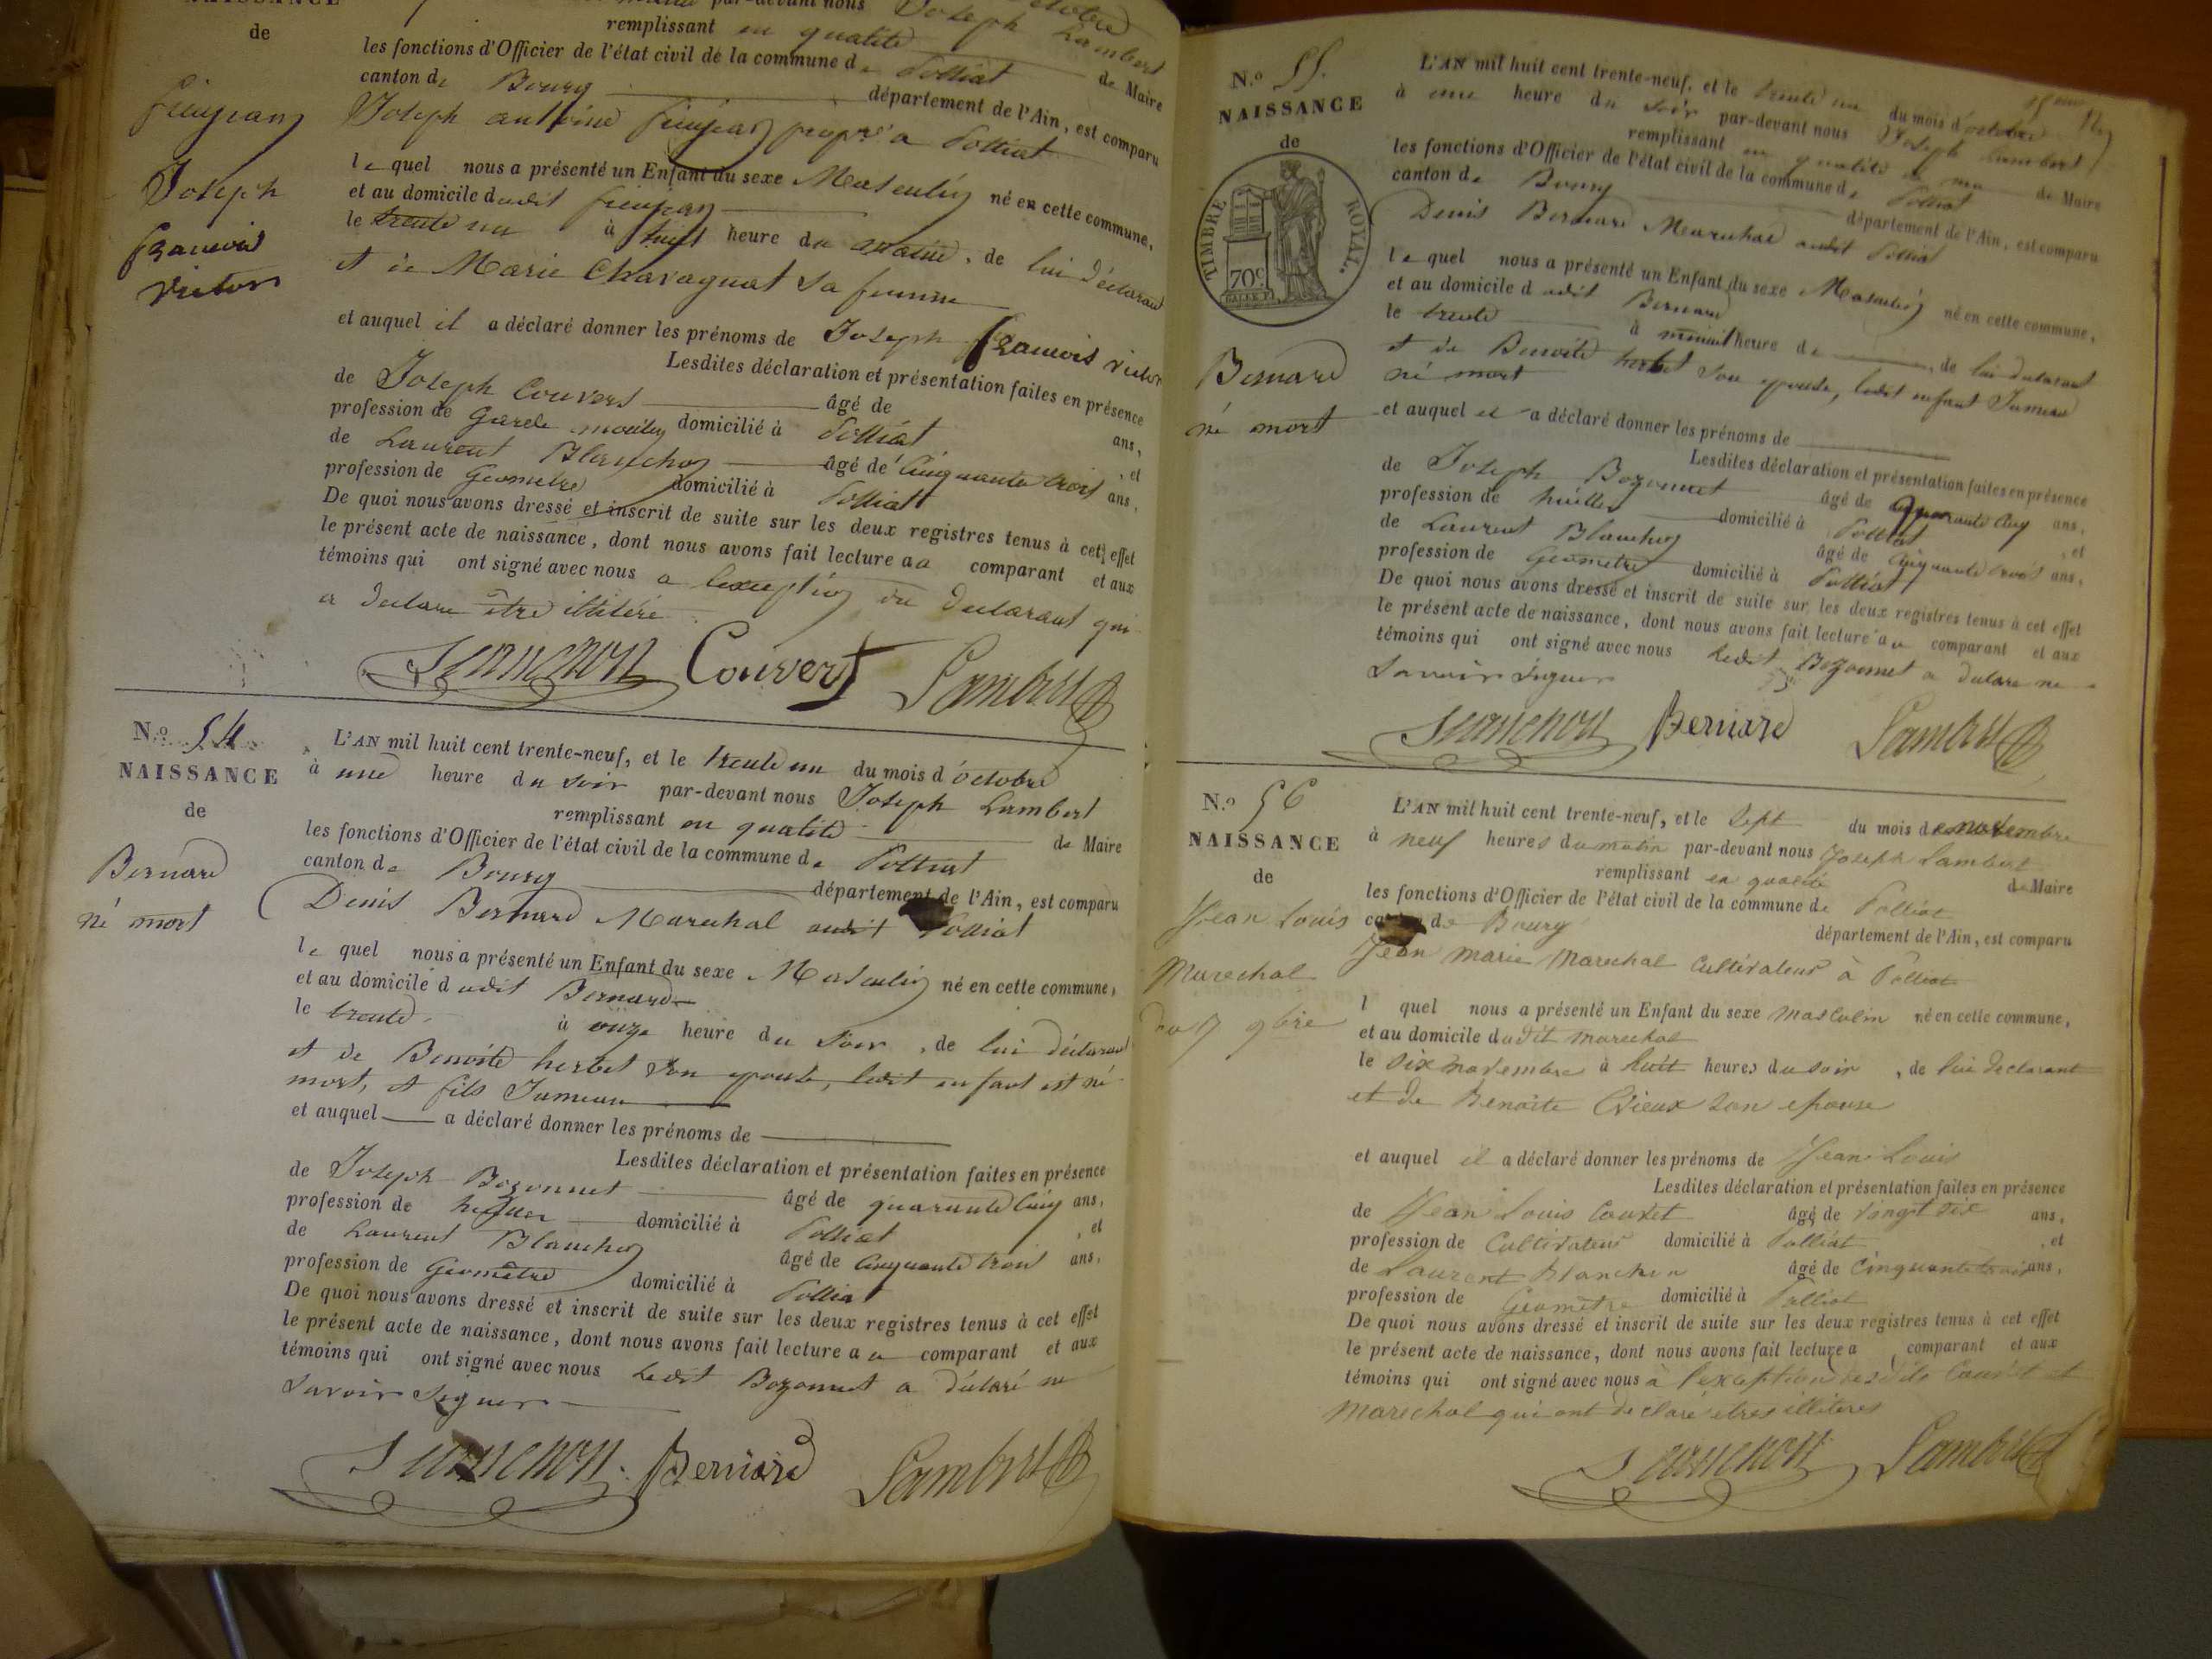 NAISSANCE
de
Joseph
francois
victor
par-devant nous Joseph Lambert
remplissant en qualité de Maire
les fonctions d'Officier de l'état civil de la commune de Polliat
canton de Bourg département de l'Ain, est comparu
Joseph antoine propre a Polliat
le quel nous a présenté un Enfant du sexe Masculin né en cette commune,
et au domicile dudit
le trente un à huit heure du matin, de lui déclarant
et de Marie Chavagnat sa femme
et auquel il a déclaré donner les prénoms de Joseph francois victor
Lesdites déclaration et présentation faites en présence
de Joseph Couvert âgé de ans,
profession de Garde moulin domicilié à Polliat, et
de Laurent Blanchon âgé de Cinquante trois ans,
profession de Geometre domicilié à Polliat
De quoi nous avons dressé et inscrit de suite sur les deux registres tenus à cet effet
le présent acte de naissance, dont nous avons fait lecture au comparant et aux
témoins qui ont signé avec nous a lexception du declarant qui
a declare être illitéré
Couvert Lambert
N.o 54
NAISSANCE
de
Bernard
né mort
L'AN mil huit cent trente-neuf, et le trente un du mois d'octobre
à une heure du soir par-devant nous Joseph Lambert
remplissant en qualité de Maire
les fonctions d'Officier de l'état civil de la commune de Polliat
canton de Bourg département de l'Ain, est comparu
Denis Bernard Marechal audit Polliat
le quel nous a présenté un Enfant du sexe Masculin né en cette commune,
et au domicile dudit Bernard
le trente à onze heure du soir, de lui déclarant
et de Benoite herbet son epouse, ledit enfant est né
mort, et fils Jumeau
et auquel a déclaré donner les prénoms de
Lesdites déclaration et présentation faites en présence
de Joseph Bozonnet âgé de quarante Cinq ans,
profession de domicilié à Polliat, et
de Laurent Blanchon âgé de Cinquante trois ans,
profession de Geomêtre domicilié à Polliat
De quoi nous avons dressé et inscrit de suite sur les deux registres tenus à cet effet
le présent acte de naissance, dont nous avons fait lecture au comparant et aux
témoins qui ont signé avec nous Ledit Bozonnet a déclaré ne
savoir signer
Bernard Lambert
N.o 55.
NAISSANCE
de
TIMBRE ROYAL.
70c
Bernard
né mort
L'AN mil huit cent trente-neuf, et le trente un du mois d'octobre
à une heure du soir par-devant nous Joseph Lambert
remplissant en qualité de Maire
les fonctions d'Officier de l'état civil de la commune de Polliat
canton de Bourg département de l'Ain, est comparu
Denis Bernard Marechal audit Polliat
le quel nous a présenté un Enfant du sexe Masculin né en cette commune,
et au domicile dudit Bernard
le trente à minuit heure de, de lui declarant
et de Benoite herbet son epouse, ledit enfant Jumeau
né mort
et auquel il a déclaré donner les prénoms de
Lesdites déclaration et présentation faites en présence
de Joseph Bozonnet âgé de quarante Cinq ans,
profession de domicilié à Polliat, et
de Laurent Blanchon âgé de Cinquante trois ans,
profession de Geometre domicilié à Polliat
De quoi nous avons dressé et inscrit de suite sur les deux registres tenus à cet effet
le présent acte de naissance, dont nous avons fait lecture au comparant et aux
témoins qui ont signé avec nous Ledit Bozonnet a declare ne
savoir signer
Bernard Lambert
N.o 56
NAISSANCE
de
Jean Louis
Marechal
du 7 9bre
L'AN mil huit cent trente-neuf, et le Sept du mois de novembre
à neuf heures du matin par-devant nous Joseph Lambert
remplissant en qualité de Maire
les fonctions d'Officier de l'état civil de la commune de Polliat
de Bourg département de l'Ain, est comparu
Jean marie Marechal Cultivateur à Polliat
l quel nous a présenté un Enfant du sexe masculin né en cette commune,
et au domicile dudit marechal
le six novembre à huit heures du soir, de lui declarant
et de Benoite Vieux son epouse
et auquel il a déclaré donner les prénoms de Jean Louis
Lesdites déclaration et présentation faites en présence
de Jean Louis âgé de vingt six ans,
profession de Cultivateur domicilié à Polliat, et
de Laurent Blanchon âgé de Cinquante trois ans,
profession de Geomètre domicilié à Polliat
De quoi nous avons dressé et inscrit de suite sur les deux registres tenus à cet effet
le présent acte de naissance, dont nous avons fait lecture a comparant et aux
témoins qui ont signé avec nous à l'exception desdits et
marechal qui ont declaré etres illiteres
Lambert